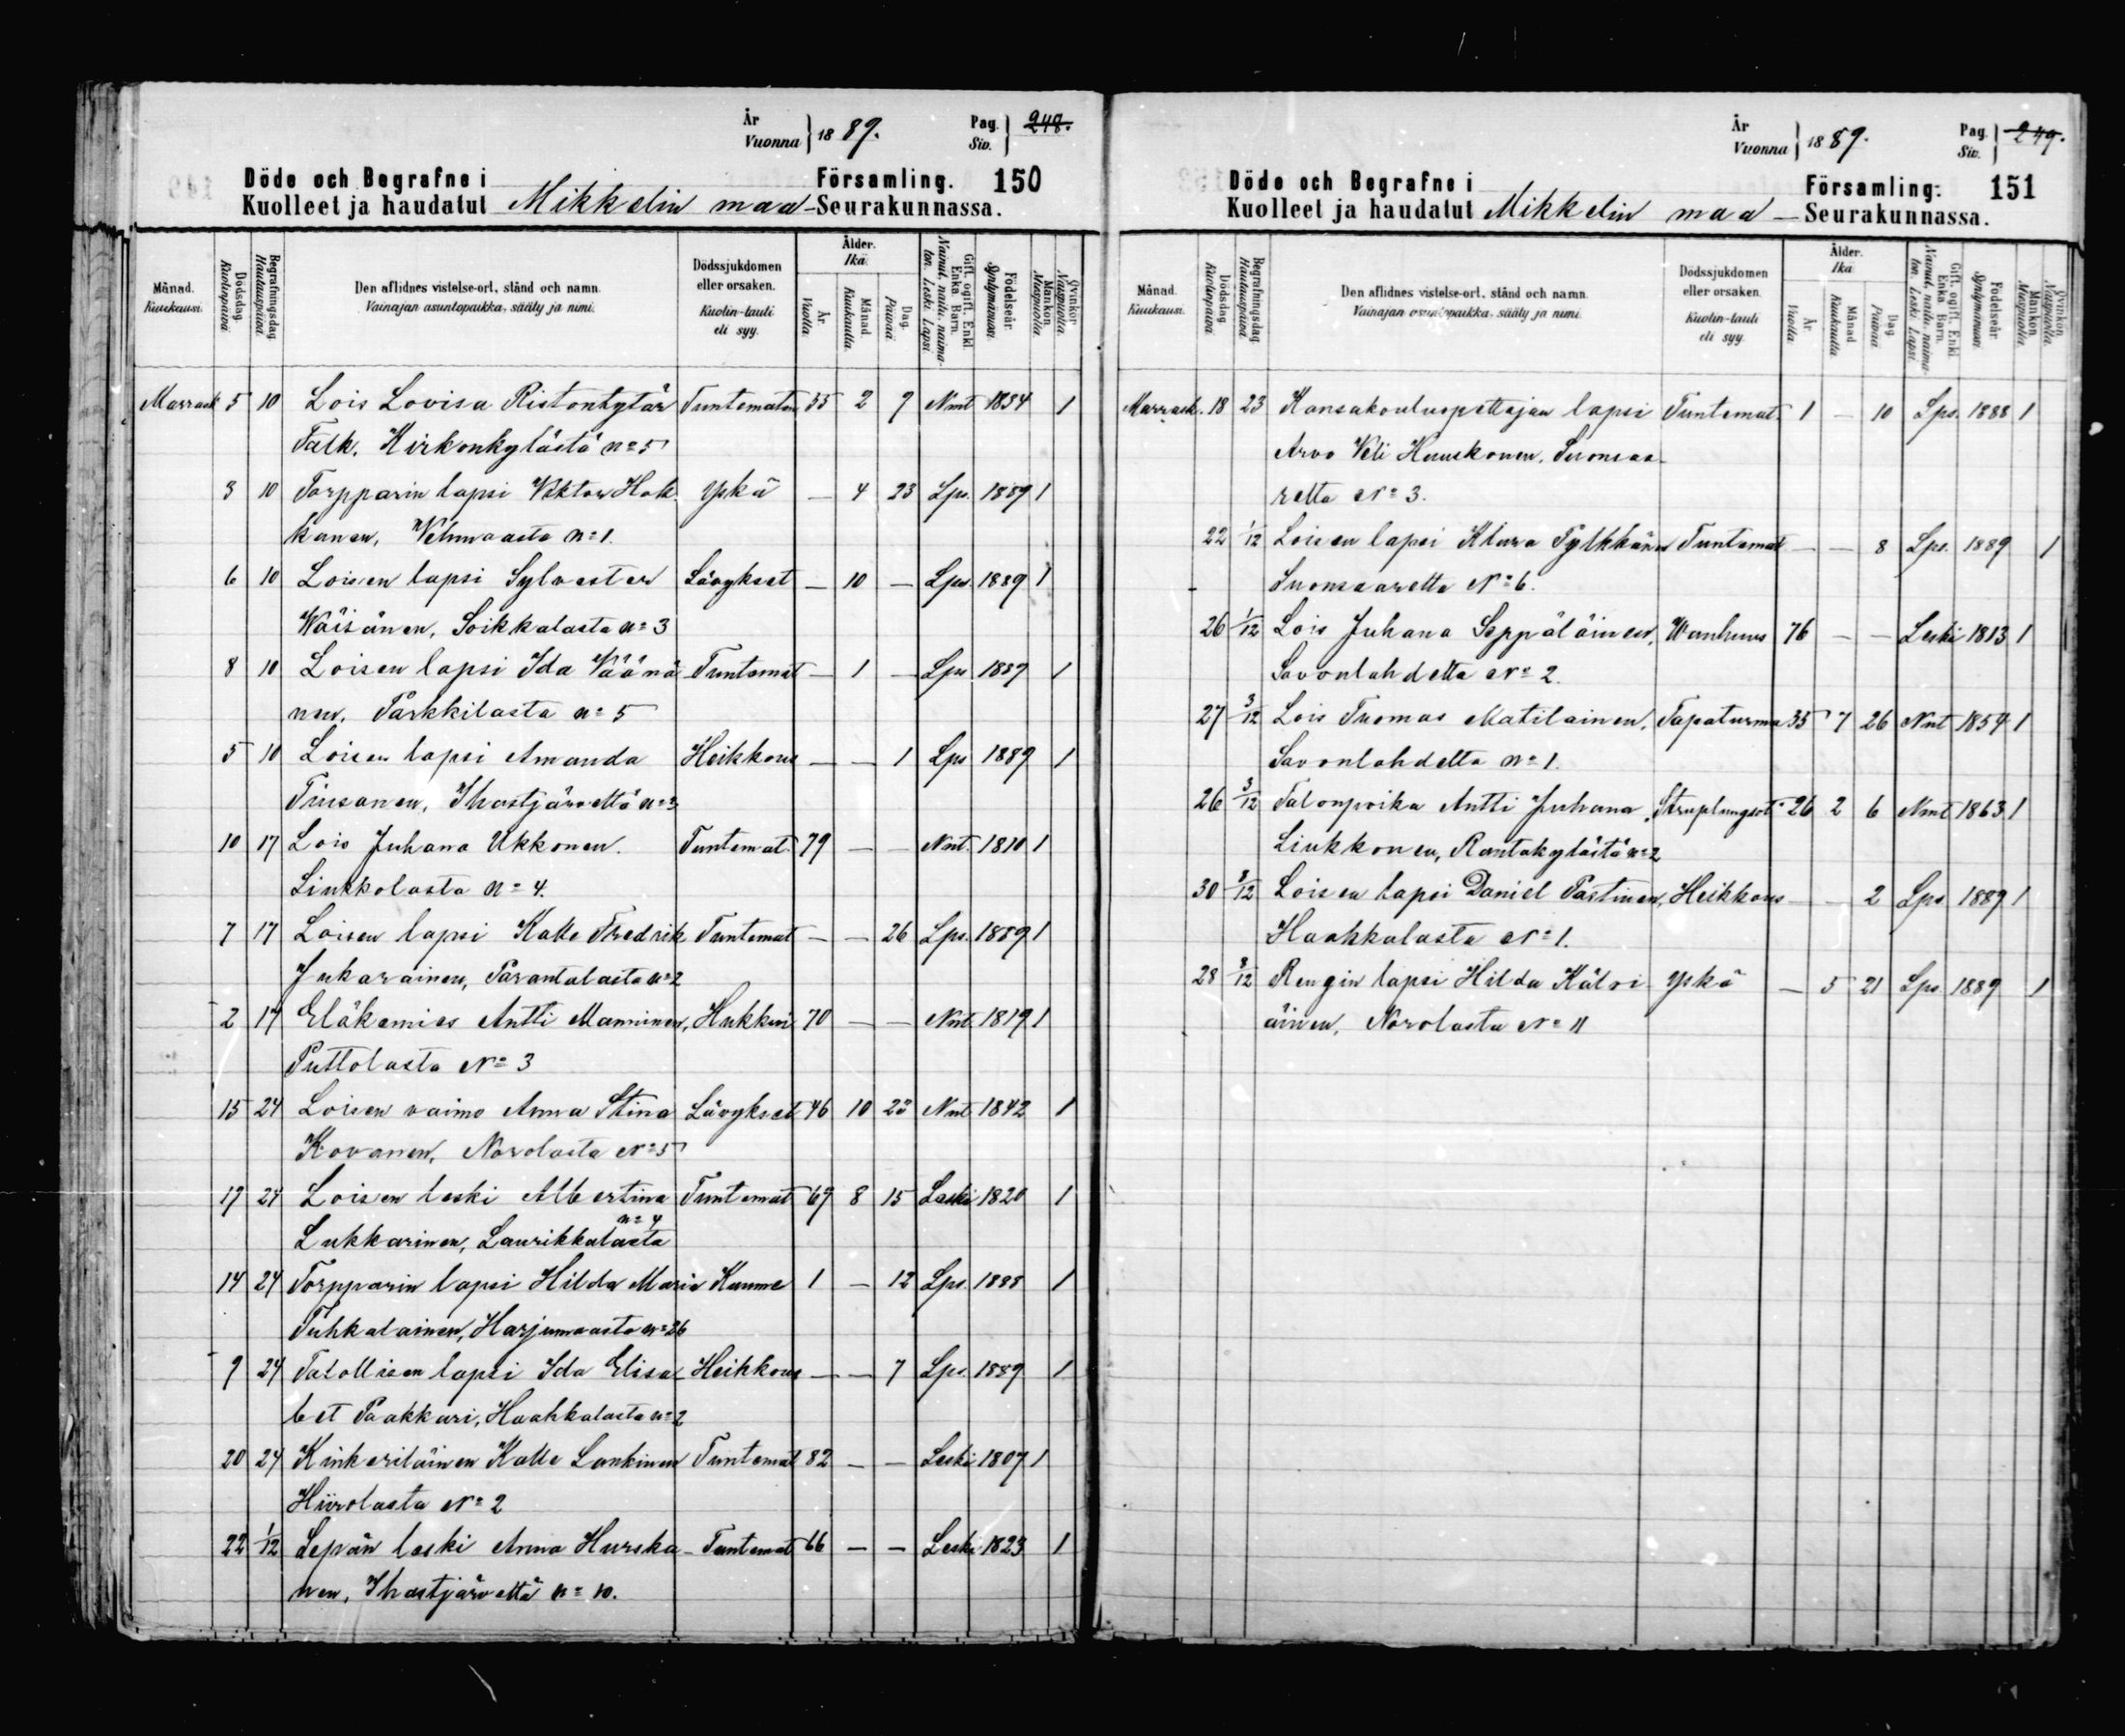 År
Vuonna } 1889.
Pag.
Siv. } 248.
Döde och Begrafne i Församling. 150
Kuolleet ja haudatut Mikkelin maa-Seurakunnassa.
Månad. Kuukausi.
Dödsdag. Kuolinpäivä.
Begrafningsdag. Hautauspäivä.
Den aflidnes vistelse-ort, stånd och namn.
Vainajan asuntopaikka, sääty ja nimi.
Dödssjukdomen eller orsaken.
Kuolin-tauti eli syy.
Ålder. Ikä.
År. Vuotta.
Månad. Kuukautta.
Dag. Päivää.
Gift, ogift, Enkl. Enka. Barn.
Nainut, nailu, naimaton. Leski. Lapsi.
Födelseår. Syntymävuosi.
Mankön. Miespuolia.
Qvinkön. Naispuolia.
Marrask 5 10 Lois Lovisa Ristontytär Tuntematon 55 2 9 Nmt 1834 1
Falk. Kirkonkylästä n=5
3 10 Torpparin lapsi Viktor Hok- Yskä — 4 23 Lps. 1889 1
kanen, Vehmaasta n=1.
6 10 Loisen lapsi Sylvester Lävykset — 10 — Lps. 1889 1
Wäisänen, Soikkalasta n=3
8 10 Loisen lapsi Ida Väänä- Tuntemat — 1 — Lps 1889 1
nen. Parkkilasta n=5
5 10 Loisen lapsi Amanda Heikkous — — 1 Lps 1889 1
Tiusanen, Ihastjärveltä n=3
10 17 Lois Juhana Ukkonen. Tuntemat. 79 — — Nnt. 1810 1
Liukkolasta n=4.
7 17 Loisen lapsi Kalle Fredrik Tuntemat — — 26 Lps. 1889 1
Jukarainen, Parantalasta n=2
2 17 Eläkemies Antti Manninen, Hukkui 70 — — Nnt. 1819 1
Puttolasta N=3
15 24 Loisen vaimo Anna Stina Lävykset 46 10 23 Nnt 1842 1
Kovanen, Norolasta N=5
19 24 Loisen leski Albertina Tuntemat 69 8 15 Leski 1820 1
n=4
Lukkarinen, Laurikkalasta
14 24 Torpparin lapsi Hilda Maria Kuume 1 — 12 Lps. 1888 1
Tuhkalainen, Harjumaasta n=26
9 24 Talollisen lapsi Ida Elisa- Heikkous — — 7 Lps. 1889 1
bet Paakkari, Haahkalasta n=2
20 24 Kinkeriläinen Kalle Lankinen Tuntemat 82 — — Leski 1807 1
Hiirolasta N=2
22 1/12 Sepän leski Anna Hurska- Tuntemat 66 — — Leski 1823 1
nen, Ihastjärveltä n=10.
År
Vuonna } 1889.
Pag.
Siv. } 249.
Döde och Begrafne i Församling. 151
Kuolleet ja haudatut Mikkelin maa-Seurakunnassa.
Månad. Kuukausi.
Dödsdag. Kuolinpäivä.
Begrafningsdag. Hautauspäivä.
Den aflidnes vistelse-ort, stånd och namn.
Vainajan asuntopaikka, sääty ja nimi.
Dödssjukdomen eller orsaken.
Kuolin-tauti eli syy.
Ålder. Ikä
År. Vuotta
Månad Kuukautta
Dag Päivää
Gift, ogift, Enkl. Enka Barn.
Nainut, nailu, naimaton. Leski. Lapsi.
Födelseår. Syntymävuosi.
Mankön. Miespuolia.
Qvinkön. Naispuolia.
Marrask. 18 23 Kansakouluopettajan lapsi Tuntemat. 1 — 10 Lps. 1888 1
Arvo Veli Huuskonen. Suonsaa-
relta N=3.
22 1/12 Loisen lapsi Klara Pylkkänen Tuntemat — — 8 Lps. 1889 1
Suonsaarelta N=6.
26 1/12 Lois Juhana Seppäläinen, Wanhuus 76 — — Leski 1813 1
Savonlahdelta N=2.
27 3/12 Lois Tuomas Matilainen, Tapaturma 35 7 26 Nnt 1854 1
Savonlahdelta n=1.
26 3/12 Talonpoika Antti Juhana 26 2 6 Nmt 1863 1
Liukkonen, Rantakylästä n=2
30 8/12 Loisen lapsi Daniel Pastinen, Heikkous — — 2 Lps 1889 1
Haahkalasta N=1.
28 8/12 Rengin lapsi Hilda Kälvi- Yskä — 5 21 Lps 1889 1
äinen, Norolasta N=11